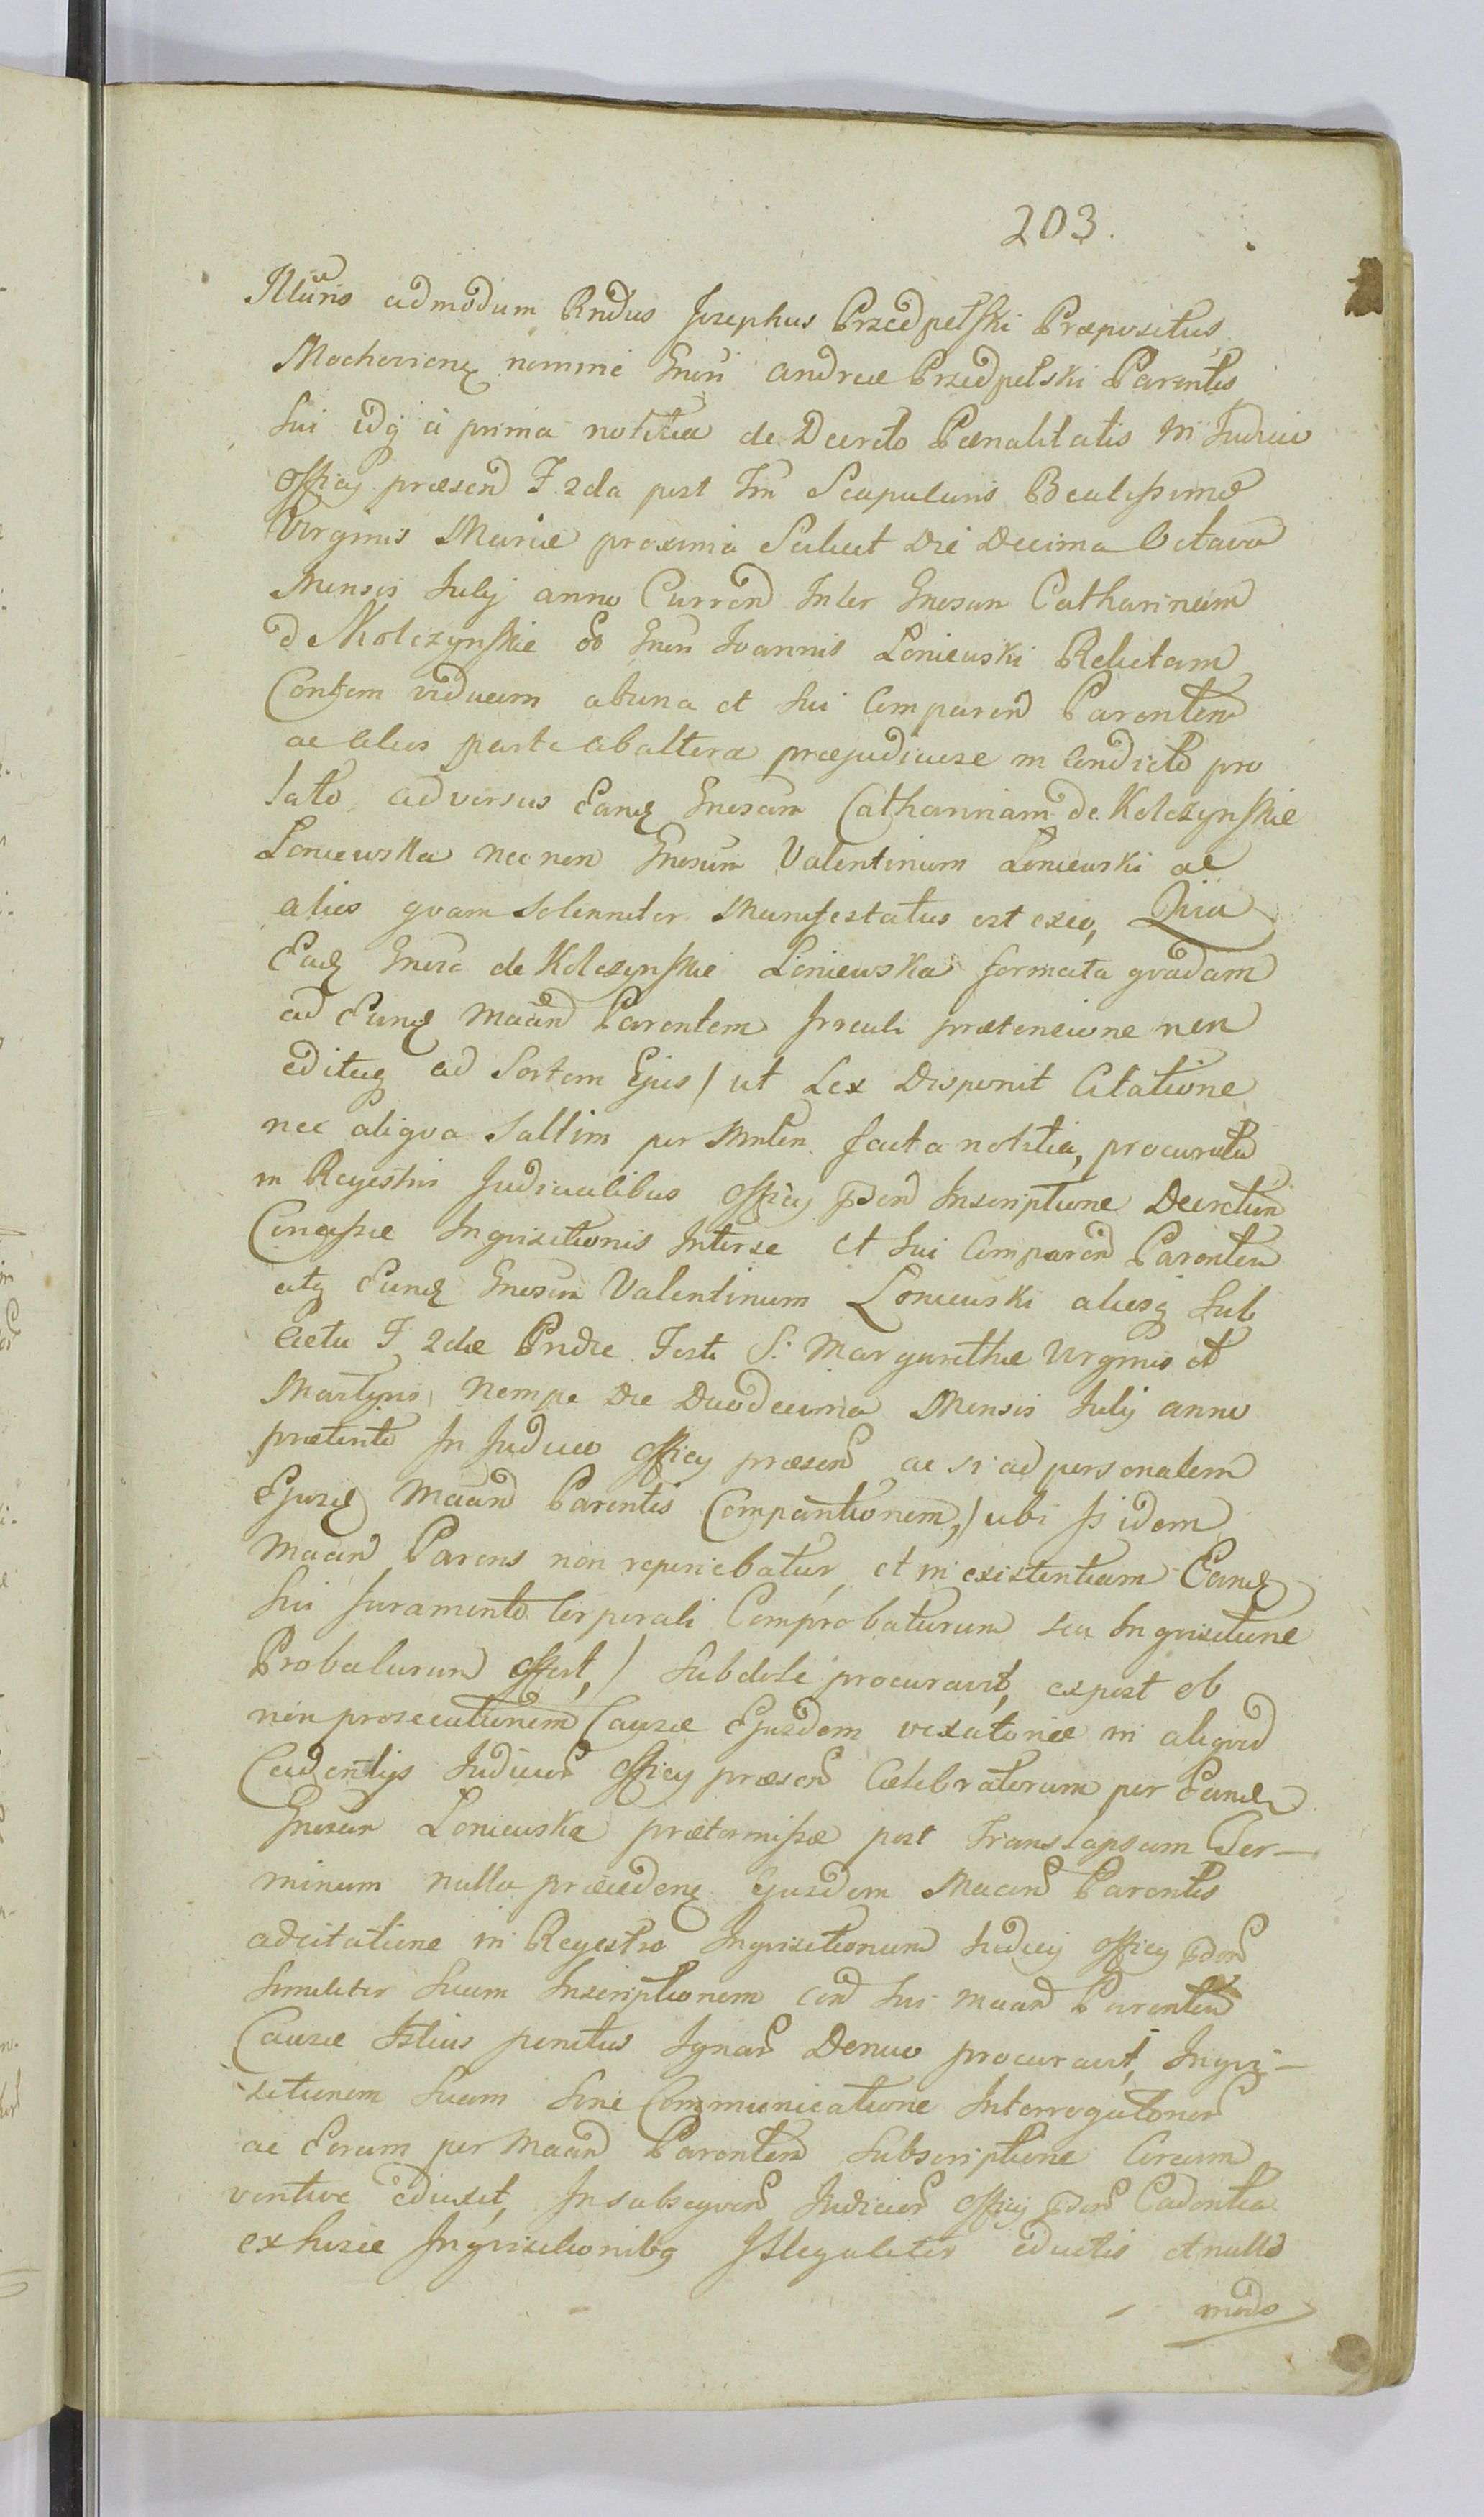 203.
Illuris admodum Rndus Josephus Przedpełski Præpositus
Mochoviens nomine Gnosi Andreæ Przedpełski Parentis
Sui idq a prima notitia de Decreto Pænalitatis in Judicio
Officij præsen F. 2da post Fm Scapularis Beatissimæ
Virginis Mariæ proxima Scilicet Die Decima Octava
Mensis Julij anno Curren Inter Gnosam Catharinam
de Kolczynskie Gnosi Joannis Loniewski Relictam
Consortem viduam ab una et Sui Comparen Parentem
ac alios parte ab altera præjudiciose in Condicto pro
lato, adversus Eand Gnosam Catharinam de Kolczynskie
Loniewska nec non Gnosum Valentinum Loniewski ac
alios quam Solenniter Manifestatus est exeo, Quia
Ead Gnosa de Kolczynskie Loniewska formata quadam
ad Eund Maand Parentem præetensione non
editaq ad Sortem Ejus / ut Lex Disponit Citatione
nec aliqua Saltim per Mnlem facta notitia, procurata
in Regestris Judicialibus Officij Inscriptione Decretum
Concessæ Inquisitionis Inter se et Sui Comparen Parentem
atq Eund Gnosum Valentinum Loniewski aliosq Sub
actu F 2dæ Pridie Festi S. Margarethæ Virginis et
Martyris, Nempe Die Duodecima Mensis Julij anno
prætento In Judicio Officij præsen ac si ad personalem
Ejusd Maand Parentis Comparitionem, / ubi idem
Maand Parens non reperiebatur, et in existentiam Eand
Sui Juramento Corporali Comprobaturum seu Inquisitione
Probaturum offert, / Subdole procuravit, expost ob
non prosecutionem Causæ Ejusdem vexatoriæ in aliquod
Cadentijs Judicior Officij præsen Celebratorum per Eand
Gnosam Loniewska prætermissæ post Translapsum Ter—
minum nulla præceden Ejusdem Maand Parentis
adcitatione in Regestro Inquisitionum Judicij Officij
Similiter Suam Inscriptionem Sui Maand Parentem
Causæ Istius penitus Ignar Denuo procuravit, Inqui—
sitionem Suam Sine Communicatione Interrogatorior
ac Eorum per Maand Parentem Subscriptione Circum
ventive eduxit, In subsequen Judicior Officij Cadentia
ex hisce Inquisitionibq Illegaliter eductis et nullo
modo